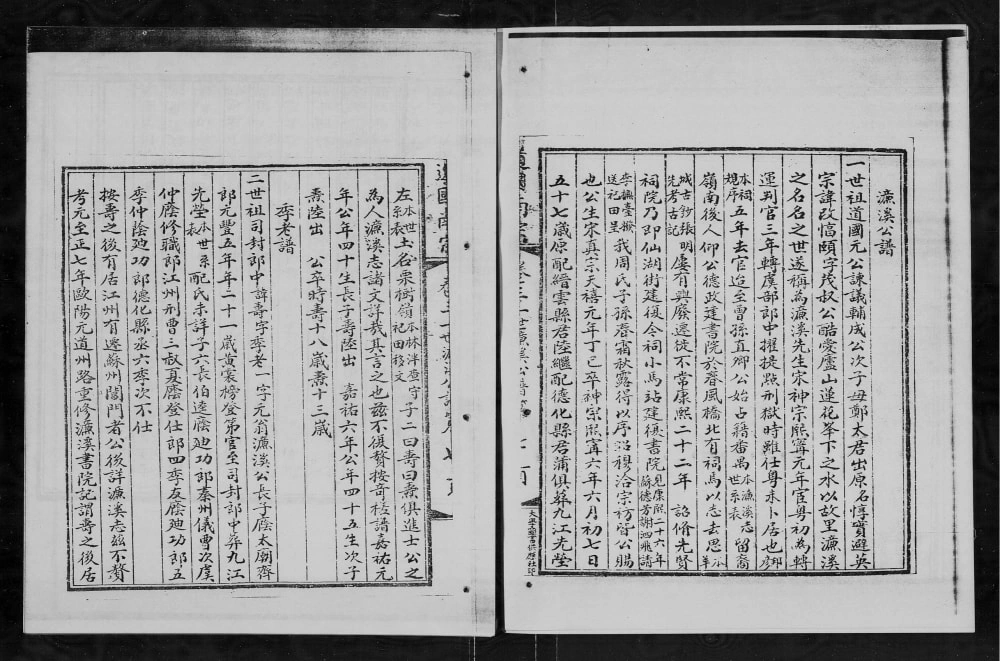 濂溪公譜
一世祖道國元公諫議輔成公次子母鄭太君出原名惇實避英
宗諱改惇頤字茂叔公酷愛廬山蓮花峯下之水以故里濂溪
之名名之世遂稱為濂溪先生宋神宗熙寧元年宦粵初為轉
運判官三年轉虞部郎中擢提點刑獄時雖仕粵未卜居也
本祠規序五年去官迨至曾孫直卿公始占籍番禺本濂溪志世系表留裔
嶺南後人仰公德政建書院於春風橋北有祠焉以志去思
城古鈔張明先考古記屢有興廢遷徙不常康熙二十二年 詔脩先賢
祠院乃即仙湖街建復今祠小馬站建復書院見康熙二十六年蘇德芳謝泗飛請
送祀田呈我周氏子孫春霜秋露得以序沿穆洽宗祊皆公賜
也公生宋真宗天禧元年丁巳卒神宗熙寧六年六月初七日
五十七歲原配縉雲縣君陸繼配德化縣君蒲俱葬九江先塋
左本世系表土名栗樹嶺本林泮查祀田移文守子二曰壽曰燾俱進士公之
為人濂溪志諸文詳載其言之也茲不復贅按奇枝譜嘉祐元
年公年四十生長子壽陸出 嘉祐六年公年四十五生次子
燾陸出 公卒時壽十八歲燾十三歲
季老譜
二世祖司封郎中諱壽字季老一字元翁濂溪公長子廕太廟齋
郎元豐五年年二十一歲黃裳榜登第官至司封郎中葬九江
先塋本世系表配氏未詳子六長伯逵廕廸功郎秦州儀曹次虞
仲廕修職郎江州刑曹三叔夏廕登仕郎四季友廕廸功郎五
季仲廕廸功郎德化縣丞六季次不仕
按壽之後有居江州有遷蘇州閶門者公後詳濂溪志茲不贅
考元至正七年歐陽元道州路重修濂溪書院記謂壽之後居